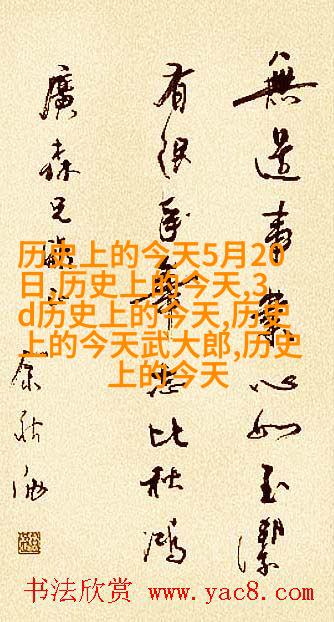 無書業心如玉潔
有志比秋鴻
廣森兄
历史上的今天5月20
日,历史上的今天,3
d历史上的今天,历史
上的今天武大郎,历史
上的今天
书法欣赏 www.yac8.com